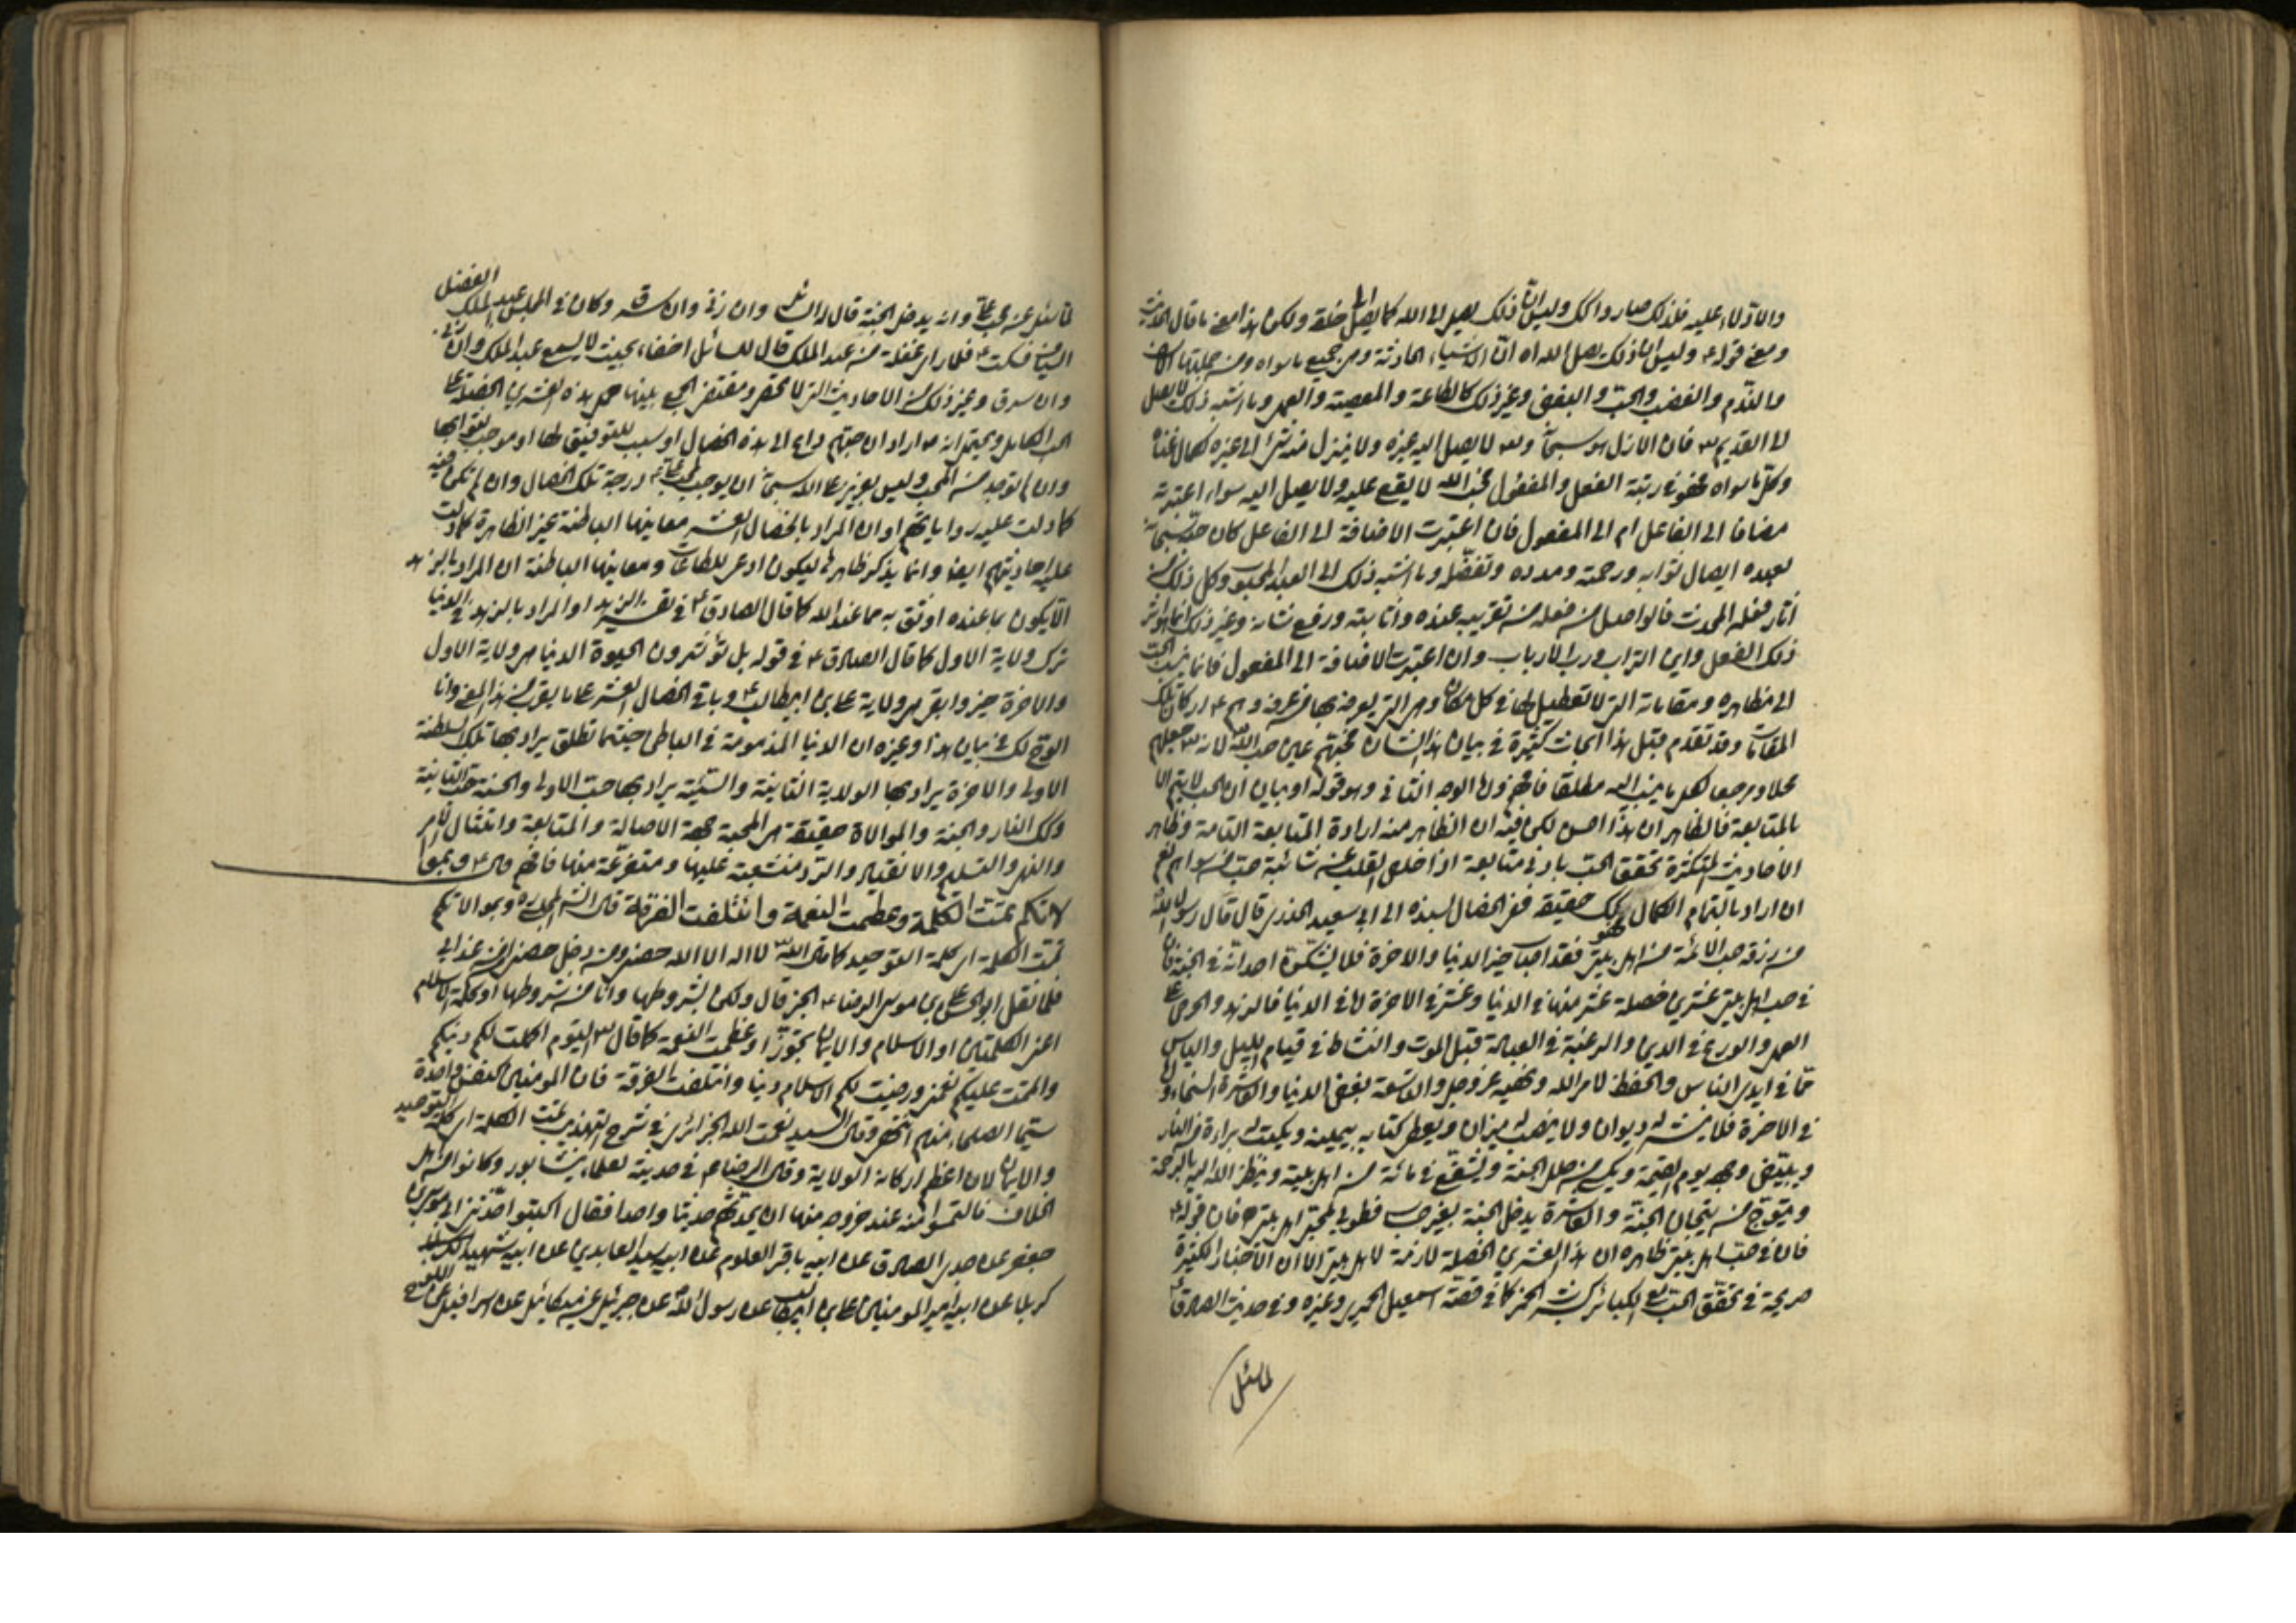 والاذلاء عليه فلذلك صار وا كك وليس ان ذلك يصل الى الله كما يصل الى خلقه ولكن هذا معنى ما قال
ومعنى قوله وليس ان ذلك يصل الى الله اه ان الاشياء الحادثة وهى جميع ما سواه ومن جملتها
والندم والغضب والحب والبغض وغير ذلك كالطاعة والمعصية والعمل وما اشبه ذلك لا يصل
الى القديم فان الازل هو سبحانه وتعالى لا يصل اليه غيره ولا ينزل منه شئ الى غيره كمال غناه
وكل ما سواه فهو في رتبة الفعل والمفعول فحب الله لا يقع عليه ولا يصل اليه سواء اعتبرته
مضافا الى الفاعل ام الى المفعول فان اعتبرت الاضافة الى الفاعل كان حبه سبحانه
لعبده ايصال ثوابه ورحمته ومدده وتفضله وما اشبه ذلك الى العبد المحبوب وكل ذلك من
اثار فعله المحدث فالواصل من فعله من تقريبه عنده واثابته ورفع شانه وغير ذلك انما هو اثر
ذلك الفعل واين التراب ورب الارباب وان اعتبرت الاضافة الى المفعول فانما ينسب الحب
الى مظاهره ومقاماته التي لا تعطيل لها في كل مكان وهى التي يعرفه بها من عرفه وهم اركان تلك
المقامات وقد تقدم قبل هذا ابحاث كثيرة في بيان هذا الشان فمحبتهم عين حب الله لانه جعلهم
محلا ومرجعا لكل ما ينسب اليه مطلقا فافهم واما الوجه الثاني وهو قوله او بيان ان الحب لا يتم الا
بالمتابعة فالظاهر ان هذا احسن لكن فيه ان الظاهر منه ارادة المتابعة التامة وظاهر
الاحاديث المتكثرة تحقق الحب بادنى متابعة اذا خلص القلب عن شائبة حب من سواهم نعم
ان اراد بالتمام الكمال فهو كك حقيقة ففي الخصال بسنده الى ابي سعيد الخدري قال قال رسول الله
من رزقه حب الائمة من اهل بيتي فقد اصاب خير الدنيا والاخرة فلا يشكن احد انه في الجنة فان
في حب اهل بيتي عشرين خصلة عشر منها في الدنيا وعشر في الاخرة اما في الدنيا فالزهد والحرص على
العمل والورع في الدين والرغبة في العبادة قبل الموت والنشاط في قيام الليل والياس
مما في ايدي الناس والحفظ لامر الله ونهيه عز وجل والتاسعة بغض الدنيا والعاشرة السخاء واما
في الاخرة فلا ينشر له ديوان ولا ينصب له ميزان ويعطى كتابه بيمينه ويكتب له براءة من النار
ويبيض وجهه يوم القيمة ويكسى من حلل الجنة ويشفع في مائة من اهل بيته وينظر الله اليه بالرحمة
ويتوج من تيجان الجنة والعاشرة يدخل الجنة بغير حساب فطوبى لمحبي اهل بيتي فان قوله
فان في حب اهل بيتي ظاهره ان هذه العشرين الخصلة لازمة لاهل بيتي الا ان الاخبار الكثيرة
صريحة في تحقق الحب مع الكبائر كشرب الخمر كما في قصة اسمعيل الحميري وغيره وفي حديث الصادق
لما سئل
لما سئل عن محب علي وانه يدخل الجنة قال له السائل وان زنى وان سرق وكان في المجلس عبد الملك الفضل
فسكت فلما راى غفلة من عبد الملك قال للسائل اخفاء بحيث لا يسمع عبد الملك وان زنى
وان سرق وغير ذلك من الاحاديث التي لا تحصر ومقتضى الجمع بينها حمل هذه العشرين الخصلة على
الحب الكامل ويحتمل انه اراد ان حبهم داع الى هذه الخصال او سبب للتوفيق لها او موجب لثوابها
وان لم توجد من المحب وليس بعزيز على الله سبحانه ان يوجب لمحب علي درجة تلك الخصال وان لم تكن فيه
كما دلت عليه رواياتهم او ان المراد بالخصال العشر معانيها الباطنة غير الظاهرة كما دلت
عليه احاديثهم ايضا وانما يذكر ظاهرها ليكون ادعى للطاعات ومعانيها الباطنة ان المراد بالزهد
الا يكون بما عنده اوثق به مما عند الله كما قال الصادق في تفسير الزهد او المراد بالزهد في الدنيا
ترك ولاية الاول كما قال الصادق في قوله بل تؤثرون الحيوة الدنيا هى ولاية الاول
والاخرة خير وابقى هى ولاية علي بن ابيطالب وباقي الخصال العشر على ما يقرب من هذا المعنى وانا
اوقع لك في بيان هذا وغيره ان الدنيا المذمومة في الباطن حيثما تطلق يراد بها تلك السلطنة
الاولى والاخرة يراد بها الولاية الثانية والسيئة يراد بها حب الاولى والحسنة حب الثانية
وكك النار والجنة والموالاة حقيقة هى المحبة بجهة الاصالة والمتابعة وامتثال الامر
والنهى والتسليم والانقياد والرد منشعبة عليها ومتفرعة منها فافهم قال ع وبموا
لاتكم تمت الكلمة وعظمت النعمة وائتلفت الفرقة قال الشه المجلسي وبموالاتكم
تمت الكلمة اى كلمة التوحيد كما قال الله لا اله الا الله حصني ومن دخل حصني امن من عذابي
فلما نقل ابو الحسن علي بن موسى الرضا الخبر قال ولكن بشروطها وانا من شروطها او كلمة الاسلام
اعنى الكلمتين او الاسلام والايمان تجوزا وعظمت النعمة كما قال اليوم اكملت لكم دينكم
واتممت عليكم نعمتى ورضيت لكم الاسلام دينا وائتلفت الفرقة فان المومنين كنفس واحدة
سيما الصلحاء منهم انتهى وقال السيد نعمت الله الجزائري في شرح التهذيب تمت الكلمة اى كلمة التوحيد
والايمان لان اعظم اركانه الولاية وقال الرضا ع في حديثه لعلماء نيشابور وكانوا من اهل
الخلاف فالتمسوا منه عند خروجه منها ان يحدثهم حديثا واحدا فقال اكتبوا حدثنى ابى موسى بن
جعفر عن جدى الصادق عن ابيه باقر العلوم عن ابيه سيد العابدين عن ابيه شهيد
كربلا عن ابيه امير المومنين علي بن ابيطالب عن رسول الله عن جبرئيل عن ميكائيل عن اسرافيل عن اللوح